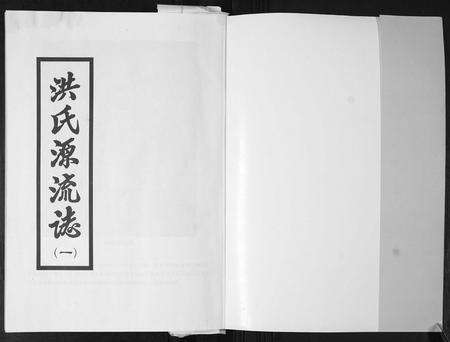 洪氏源流誌
(一)